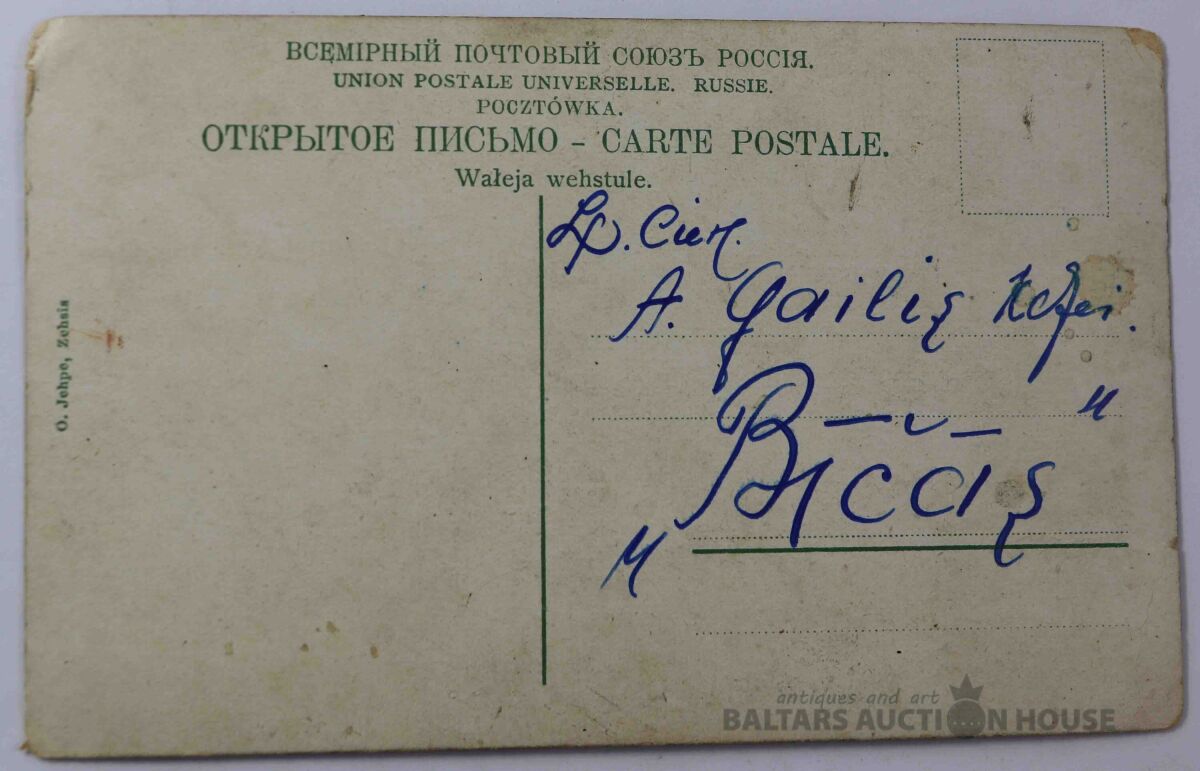 ВСЕМІРНЫЙ ПОЧТОВЫЙ СОЮЗЪ РОССІЯ.
UNION POSTALE UNIVERSELLE. RUSSIE.
POCZTÓWKA.
ОТКРЫТОЕ ПИСЬМО – CARTE POSTALE.
Wałeja wehstule.
O. Jehpe, Zehsis
A. Gailiş
„ Bīčās "
antiques and art
BALTARS AUCTION HOUSE